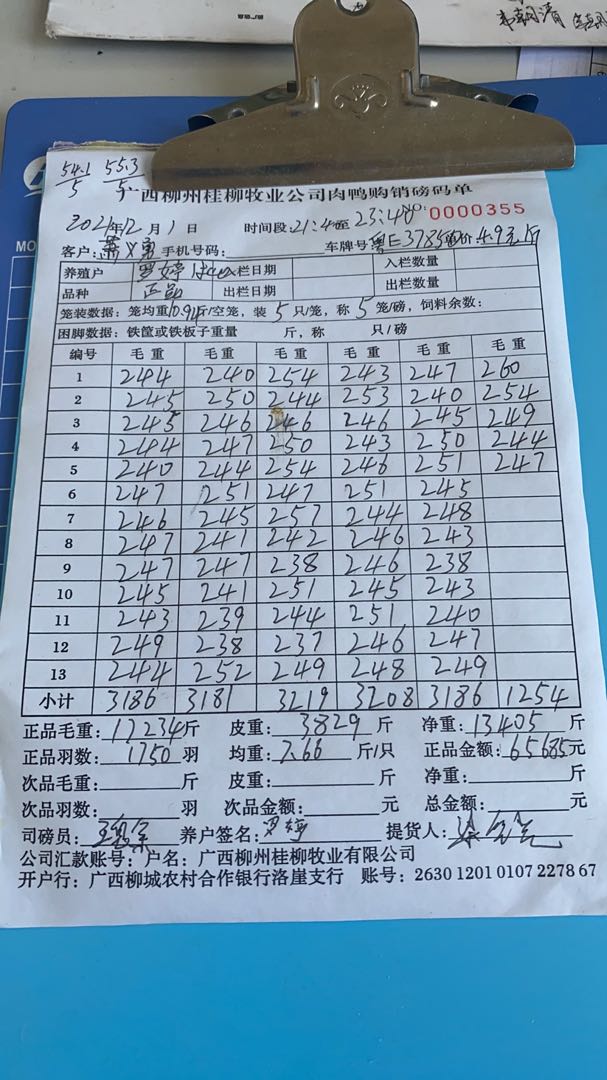 54.1/5 55.3/5
广西柳州桂柳牧业公司肉鸭购销磅码单
2021年12月1日 时间段:21:40至23:40 NO: 0000355
客户: 手机号码: 车牌号:粤E3785 单价:4.9元/斤
养殖户 入栏日期 入栏数量
品种 正品 出栏日期 出栏数量
笼装数据: 笼均重10.94斤/空笼, 装5只/笼, 称5笼/磅, 饲料余数:
困脚数据: 铁筐或铁板子重量 斤, 称 只/磅
编号 毛重 毛重 毛重 毛重 毛重 毛重
1 244 240 254 243 247 260
2 245 250 244 253 240 254
3 245 246 246 246 245 249
4 244 247 250 243 250 244
5 240 244 254 246 251 247
6 247 251 247 251 245
7 246 245 257 244 248
8 247 241 242 246 243
9 247 247 238 246 238
10 245 241 251 245 243
11 243 239 244 251 240
12 249 238 237 246 247
13 244 252 249 248 249
小计 3186 3181 3219 3208 3186 1254
正品毛重:17234斤 皮重:3829斤 净重:13405斤
正品羽数:1750羽 均重:7.66斤/只 正品金额:65685元
次品毛重: 斤 皮重: 斤 净重: 斤
次品羽数: 羽 次品金额: 元 总金额: 元
司磅员: 养户签名:罗婷 提货人:
公司汇款账号: 户名: 广西柳州桂柳牧业有限公司
开户行: 广西柳城农村合作银行洛崖支行 账号: 2630 1201 0107 2278 67